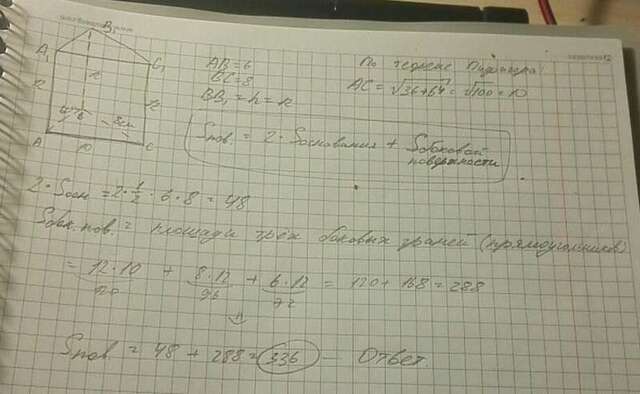 B₁
A₁
C₁
AB = 6
BC = 8
BB₁ = h = 12
По теореме Пифагора:
AC = √36+64 = √100 = 10
12
12
12
8см
A
10
C
Sпов. = 2 · Sоснования + Sбоковой поверхности
2 · Sосн = 2 · 1/2 · 6 · 8 = 48
Sбок.пов. = площади трёх боковых граней (прямоугольников)
= 12·10 + 8·12 + 6·12 = 120 + 168 = 288
96 72
Sпов = 48 + 288 = 336 — Ответ.